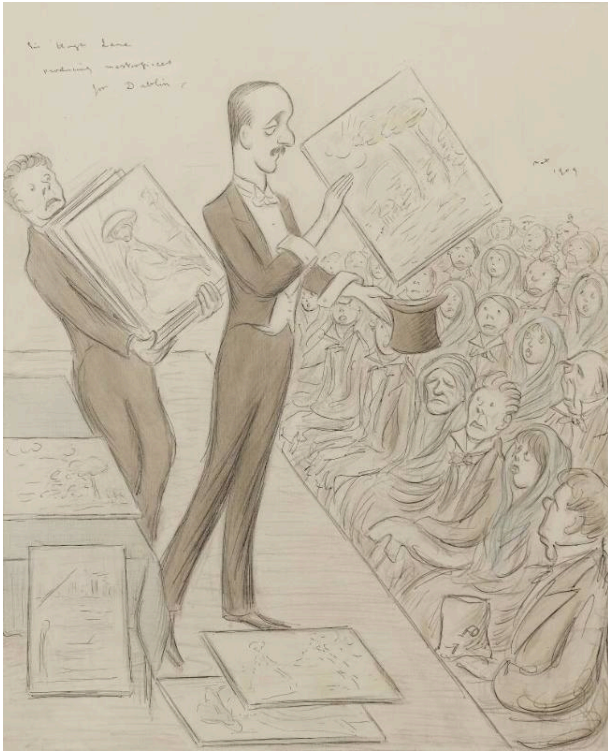 Sir Hugh Lane
producing masterpieces
for Dublin.
Max
1909